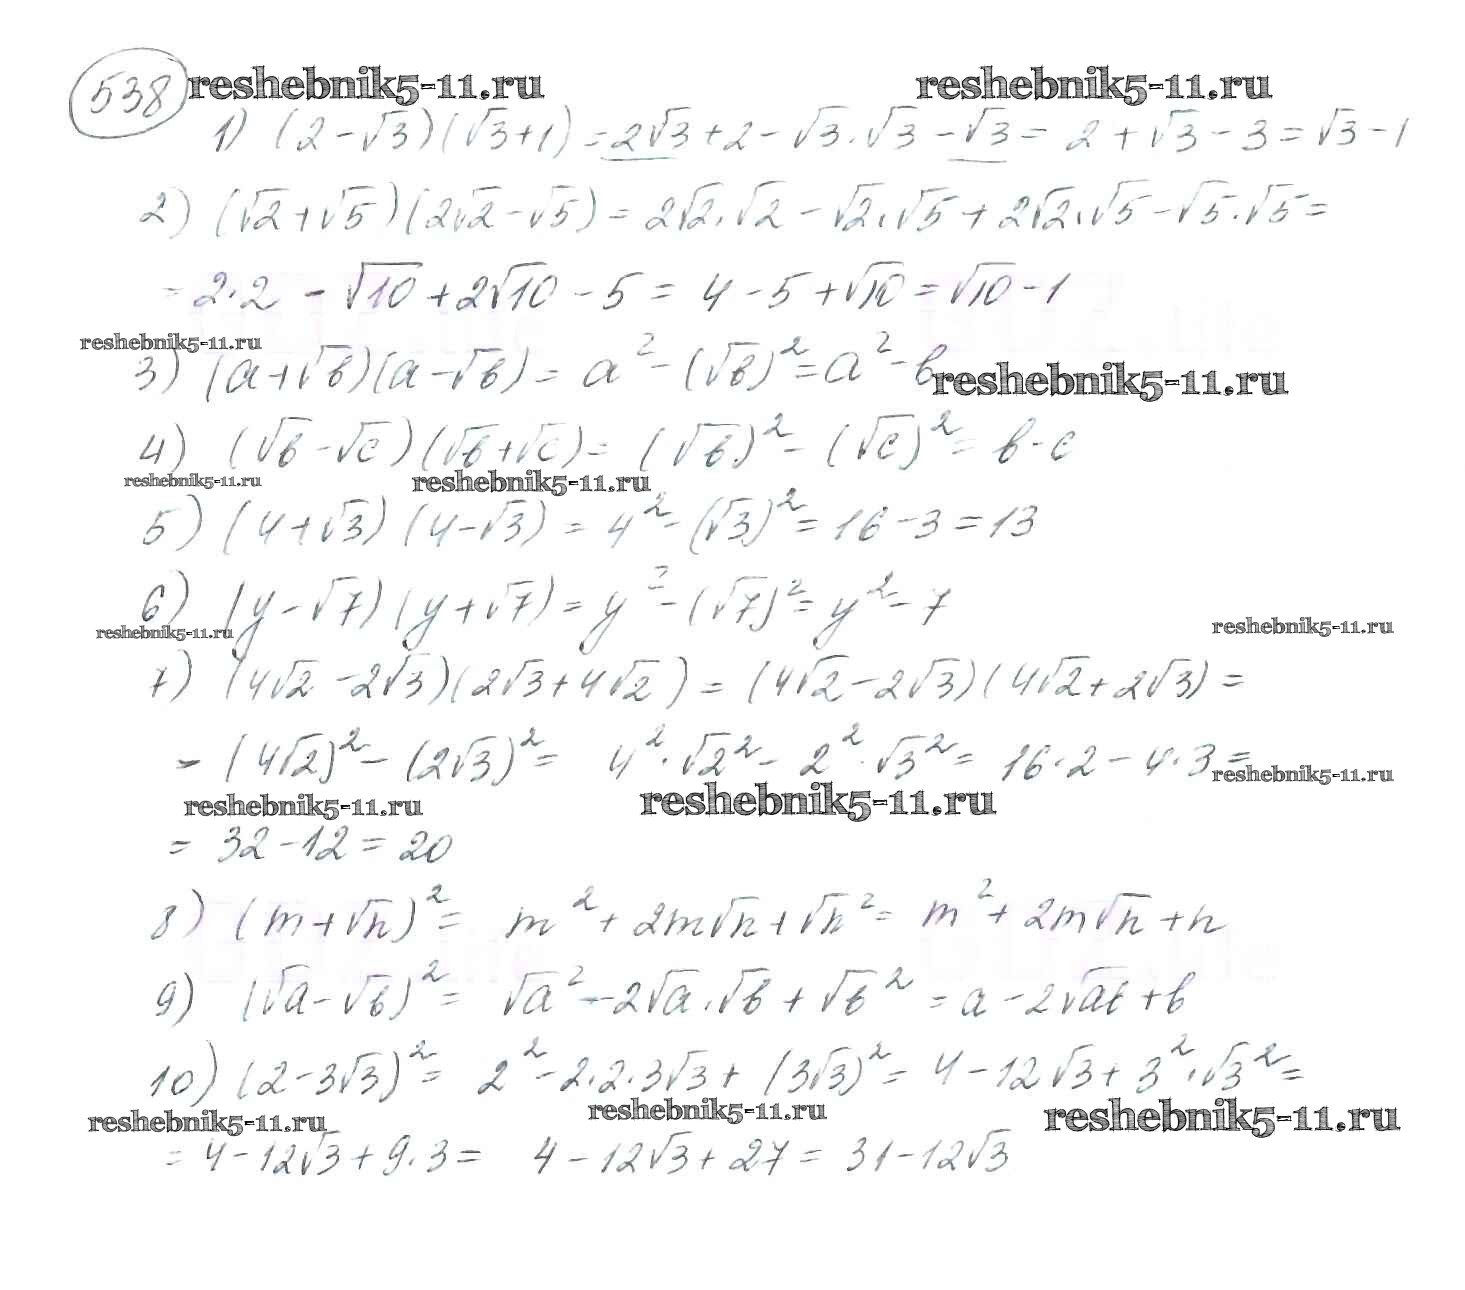 538 reshebnik5-11.ru reshebnik5-11.ru
1) (2-√3)(√3+1) = 2√3+2-√3·√3-√3 = 2+√3-3 = √3-1
2) (√2+√5)(2√2-√5) = 2√2·√2-√2·√5+2√2·√5-√5·√5 =
= 2·2-√10+2√10-5 = 4-5+√10 = √10-1
reshebnik5-11.ru
3) (a+√в)(a-√в) = a²-(√в)² = a²-в reshebnik5-11.ru
4) (√в-√c)(√в+√c) = (√в)²-(√c)² = в-c
reshebnik5-11.ru reshebnik5-11.ru
5) (4+√3)(4-√3) = 4²-(√3)² = 16-3 = 13
6) (y-√7)(y+√7) = y²-(√7)² = y²-7
reshebnik5-11.ru reshebnik5-11.ru
7) (4√2-2√3)(2√3+4√2) = (4√2-2√3)(4√2+2√3) =
= (4√2)²-(2√3)² = 4²·√2²-2²·√3² = 16·2-4·3 =
reshebnik5-11.ru
reshebnik5-11.ru reshebnik5-11.ru
= 32-12 = 20
8) (m+√n)² = m²+2m√n+√n² = m²+2m√n+n
9) (√a-√в)² = √a²-2√a·√в+√в² = a-2√aв+в
10) (2-3√3)² = 2²-2·2·3√3+(3√3)² = 4-12√3+3²·√3² =
reshebnik5-11.ru reshebnik5-11.ru reshebnik5-11.ru
= 4-12√3+9·3 = 4-12√3+27 = 31-12√3